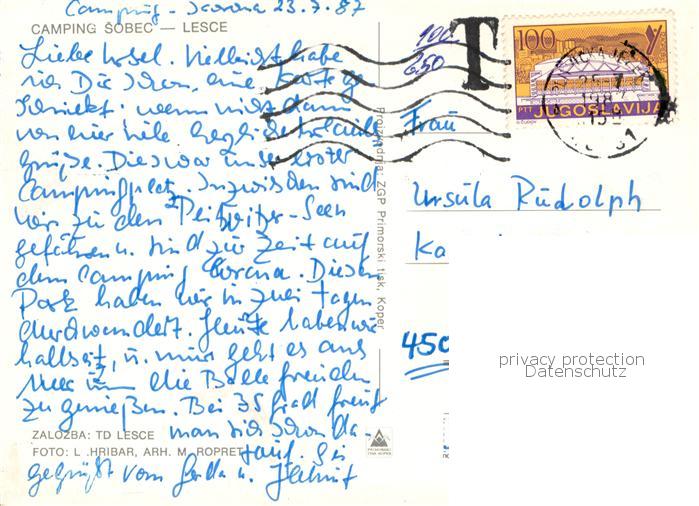 Camping - Korana 23.7.87
CAMPING ŠOBEC — LESCE
Liebe Ursel. Vielleicht habe
ich Dir schon eine Karte ge
schickt, wenn nicht dann
von hier viele Urlaubs
grüße. Dies war unser erster
Campingplatz. Inzwischen sind
wir zu den Plitvitzer-Seen
gefahren u. sind zur Zeit auf
dem Camping Korana. Diesen
Park haben wir in zwei Tagen
durchwandert. Heute haben wir
u. nun geht es ans
Meer um die Badefreuden
zu genießen. Bei 35 Grad freut
man sich schon da-
rauf. Sei
gegrüßt von Gerda u. Helmut
ZALOŽBA: TD LESCE
FOTO: L. HRIBAR, ARH. M. ROPRET
Proizvodnja: ZGP Primorski tisk, Koper
T
100
2.50
100
PTT JUGOSLAVIJA
Frau
Ursula Rudolph
Ka
450
privacy protection
Datenschutz